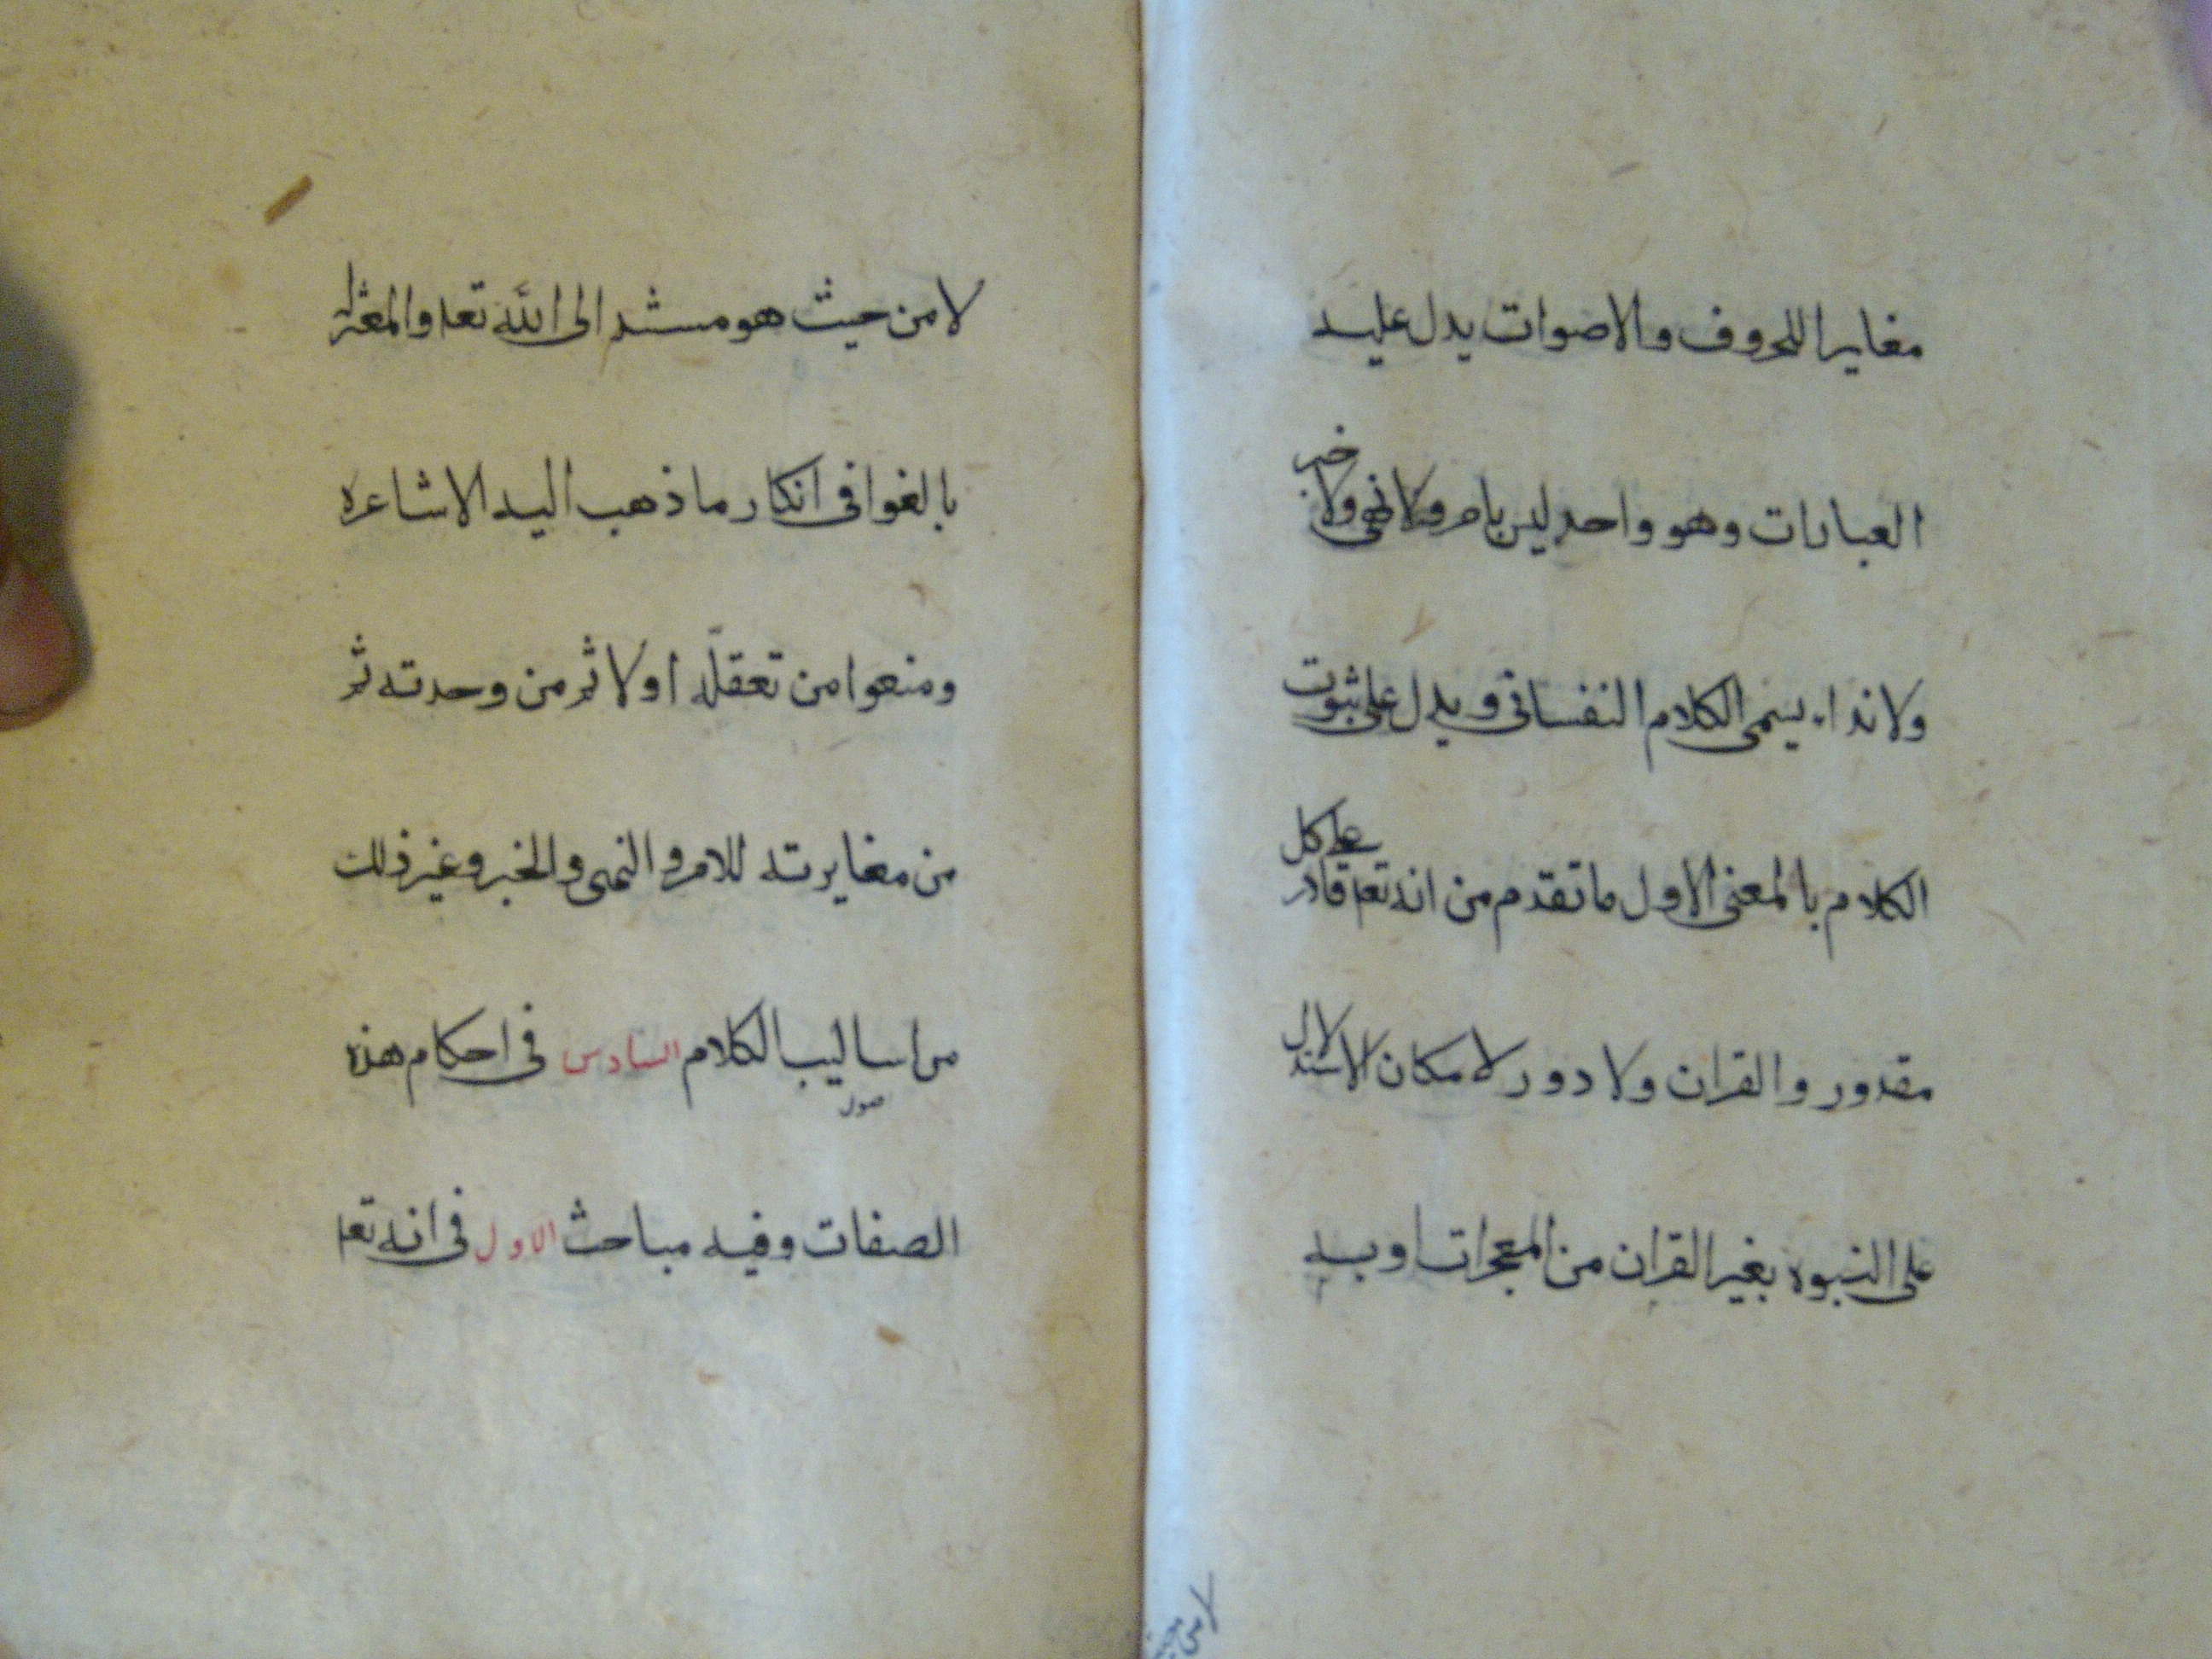 مغايرا للحروف والاصوات يدل عليه
العبارات وهو واحد ليس بامر ولا نهى ولا خبر
ولا نداء يسمى الكلام النفسانى ويدل على ثبوت
الكلام بالمعنى الاول ما تقدم من انه تعه قادر على كل
مقدور والقران ولا دور لامكان الاستدلال
على النبوه بغير القران من المعجزات او به
لا من حيث
لا من حيث هو مسند الى الله تعه والمعتزله
بالغوا فى انكار ما ذهب اليه الاشاعره
ومنعوا من تعقله اولا ثم من وحدته ثم
من مغايرته للامر والنهى والخبر وغير ذلك
من اساليب الكلام السادس فى احكام هذه
الصفات وفيه مباحث الاول فى انه تعه